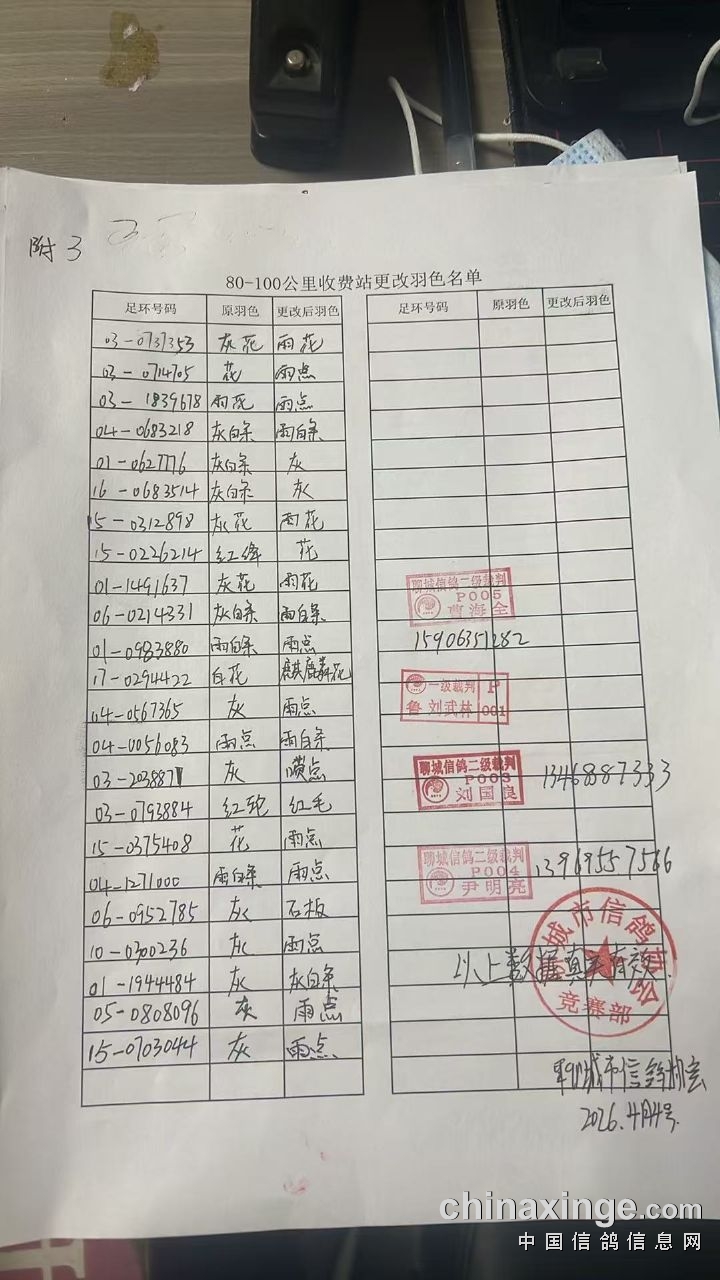 附3
80-100公里收费站更改羽色名单
足环号码 原羽色 更改后羽色 足环号码 原羽色 更改后羽色
03-0737353 灰花 雨花
03-0714705 花 雨点
03-1839678 雨花 雨点
04-0683218 灰白条 雨白条
01-0627776 灰白条 灰
16-0683514 灰白条 灰
15-0312898 灰花 雨花
15-0226214 红绛 花
01-1491637 灰花 雨花
06-0214331 灰白条 雨白条
01-0983880 雨白条 雨点
17-0294422 白花 麒麟花
04-0567365 灰 雨点
04-0056083 雨点 雨白条
03-2038871 灰 喷点
03-0793884 红轮 红毛
15-0375408 花 雨点
04-1271000 雨白条 雨点
06-0952785 灰 石板
10-0300236 灰 雨点
01-1944484 灰 灰白条
05-0808096 灰 雨点
15-0703044 灰 雨点
聊城信鸽二级裁判
P005
曹海全
15906351282
一级裁判 P
鲁 刘武林 001
聊城信鸽二级裁判
P003
刘国良
13468887333
聊城信鸽二级裁判
P004
尹明亮
13969557566
城市信鸽协会
竞赛部
以上数据真实有效.
聊城市信鸽协会
2026.4月4号.
chinaxinge.com
中国信鸽信息网